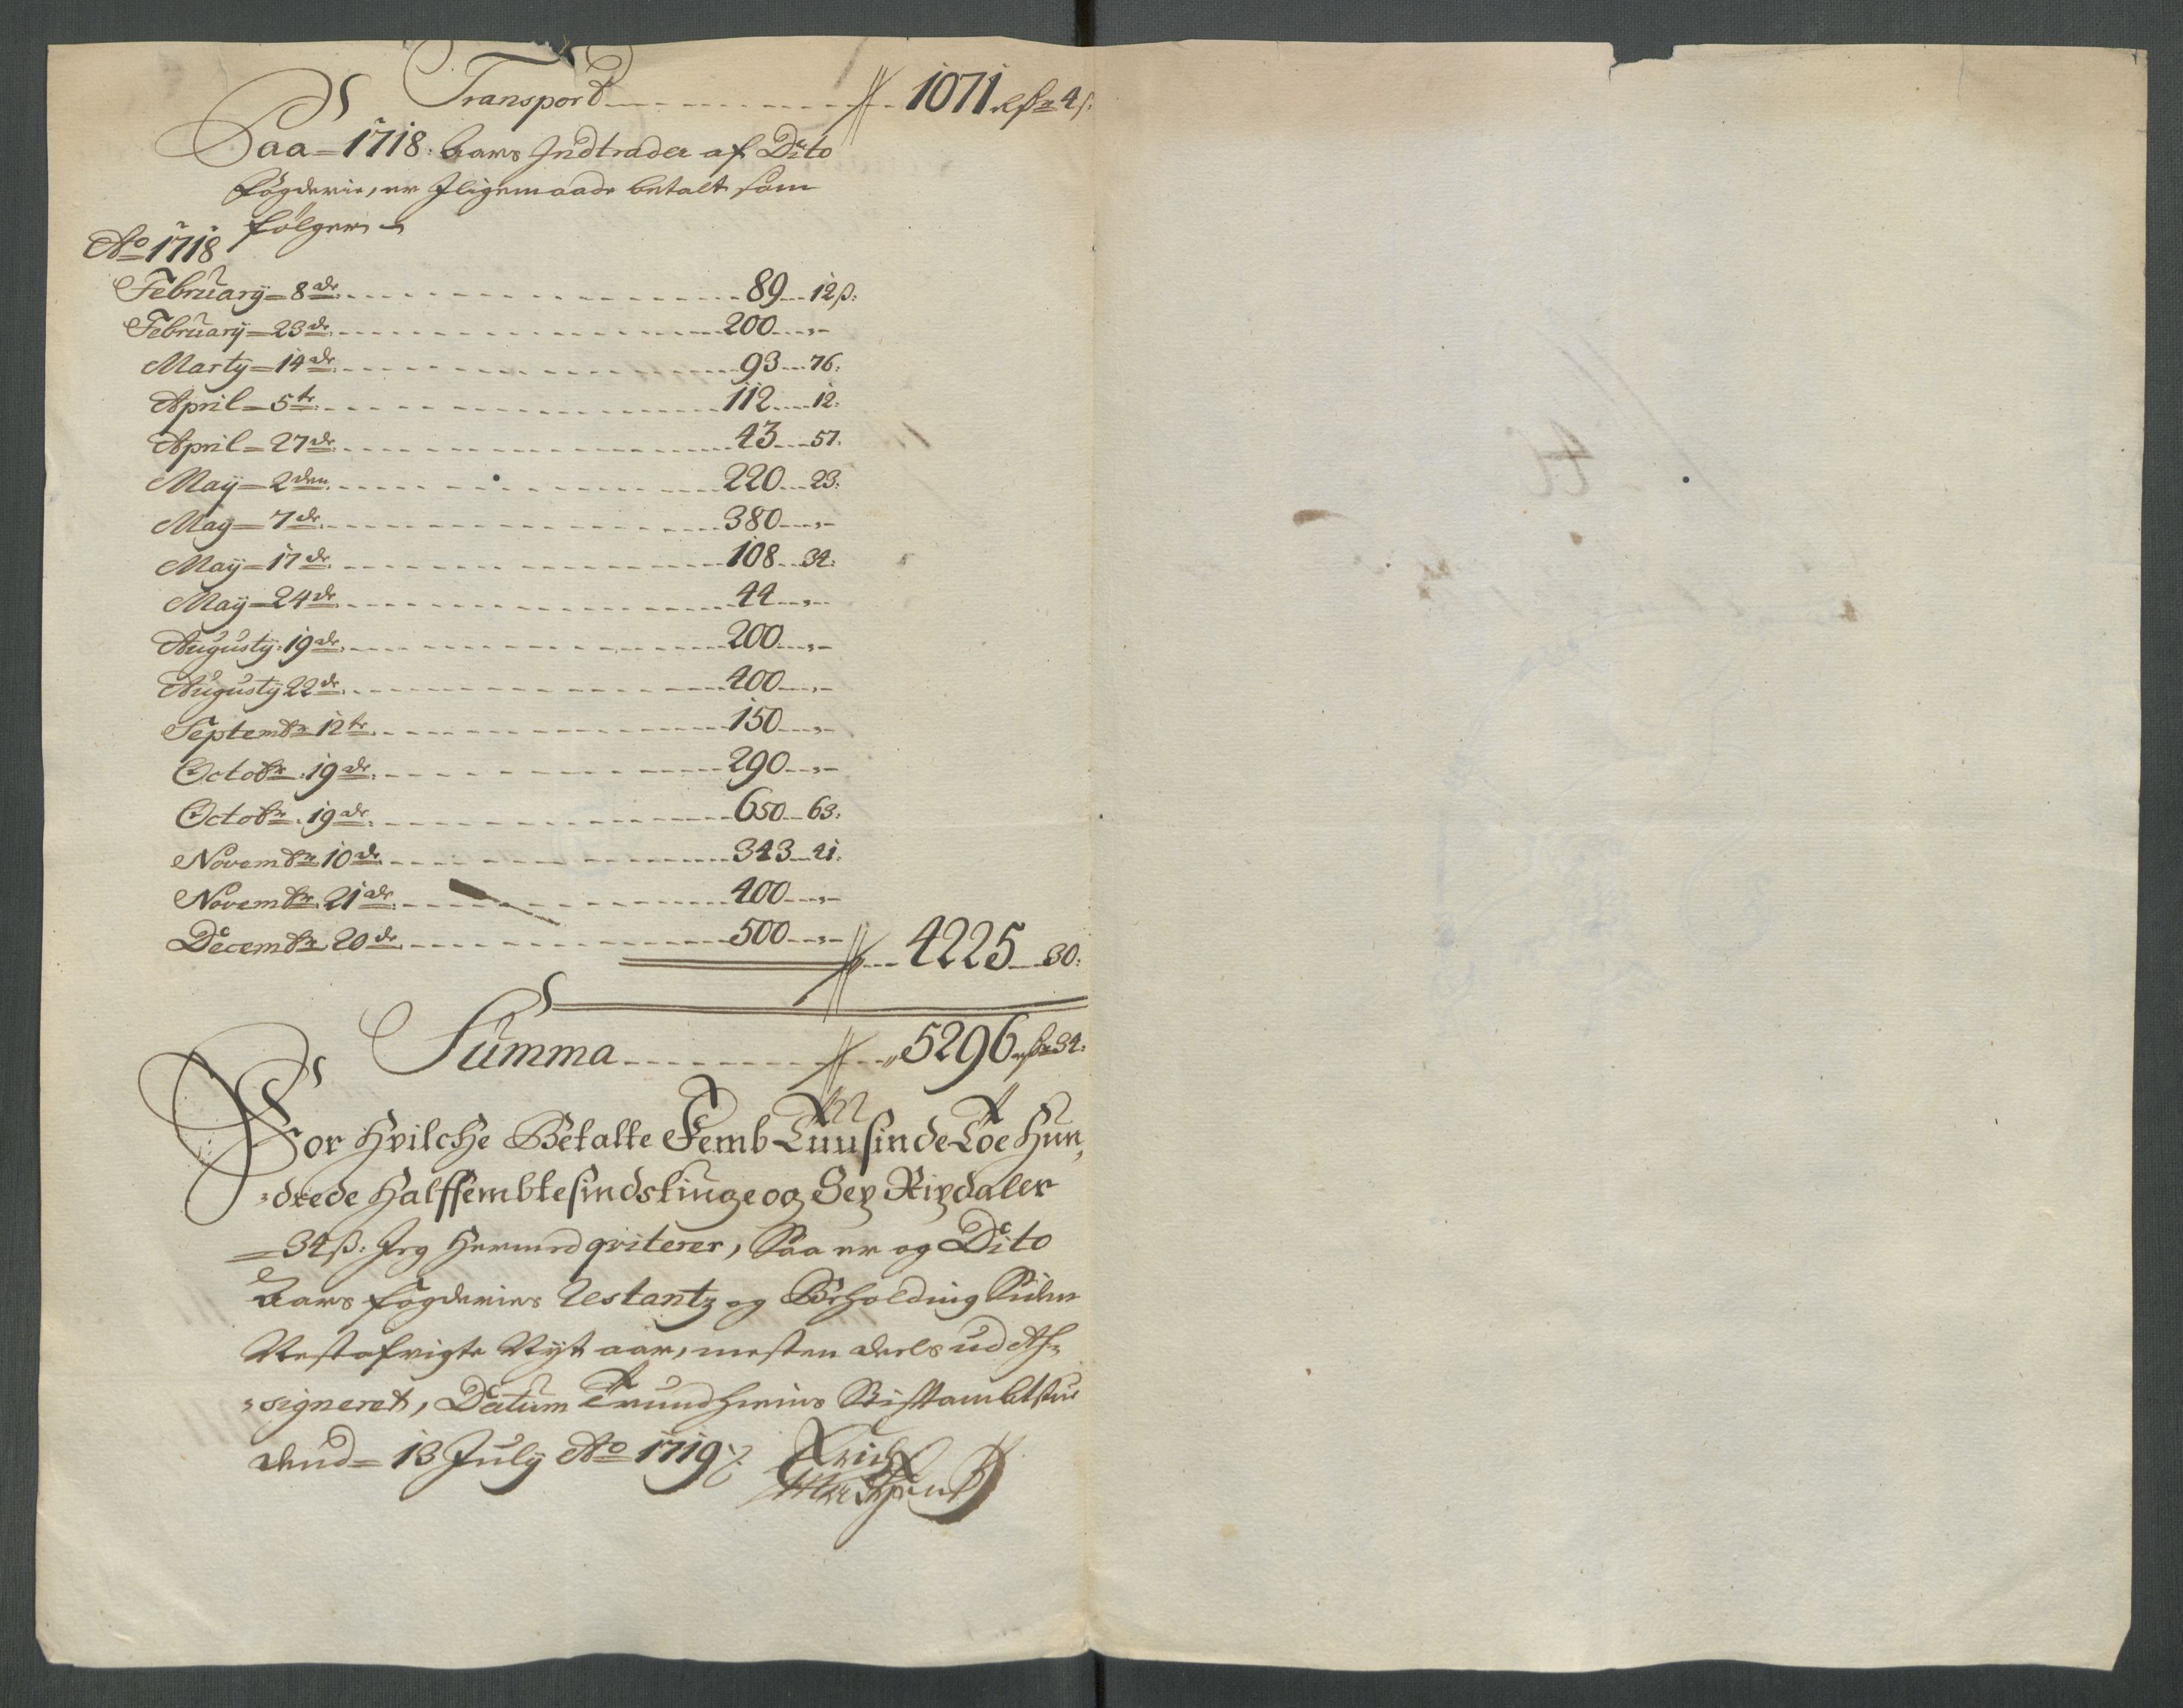 Transport 1071 rdr 4 ß:
Paa 1718: Aars Indtrader af Dito
Fogderie, er Jligemaade betalt som
følger
Ao 1718
February 8de 89 12ß:
February 23de 200 „-
Marty 14de 93 76:
April 5te 112 12:
April 27de 43 57:
Maÿ 2den 220 23:
May 7de 380 „-
Maÿ 17de 108 34:
Maÿ 24de 44 „-
Augusty: 19de 200 „-
Augusty 22de 400 „-
Septembr 12te 150 „-
Octobr: 19de 290 „-
Octobr: 19de 650 63:
Novembr 10de 343 41:
Novembr. 21de 400 „-
Decembr 20de 500 „- 4225 30:
Summa 5296 rdr 34:
For Hvilche Betalte Femb Tuusinde Toe Hun,
drede Halffembtesindstiuge og Sex Rixdaler
34ß: Jeg Hermed qviterer, Saa er og Dito
Aars Fogderies Restantz og Beholding Siden
Nestafvigte Nyt aar, mesten deels ud As=
signeret, Datum Trundhiems Stiftambtstue
dend 13 July Ao 1719